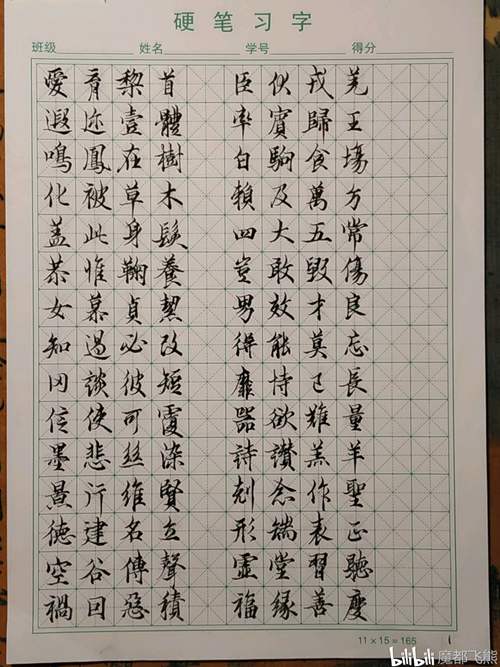 硬笔习字
班级 姓名 学号 得分
愛育黎首 臣伏戎羌
遐迩壹體 率賓歸王
鳴鳳在樹 白駒食場
化被草木 賴及萬方
蓋此身髮 四大五常
恭惟鞠養 豈敢毀傷
女慕貞絜 男效才良
知過必改 得能莫忘
罔談彼短 靡恃己長
信使可覆 器欲難量
墨悲絲染 詩讚羔羊
景行維賢 剋念作聖
德建名立 形端表正
空谷傳聲 虛堂習聽
禍因惡積 福緣善慶
11×15=165
bilibili 魔都飞熊